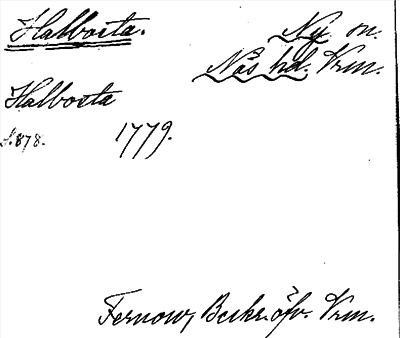 Halbosta. Ny sn.
Näs hd. Vrm.
Halbosta
s. 878. 1779.
Fernow, Beskr. öfv. Vrm.